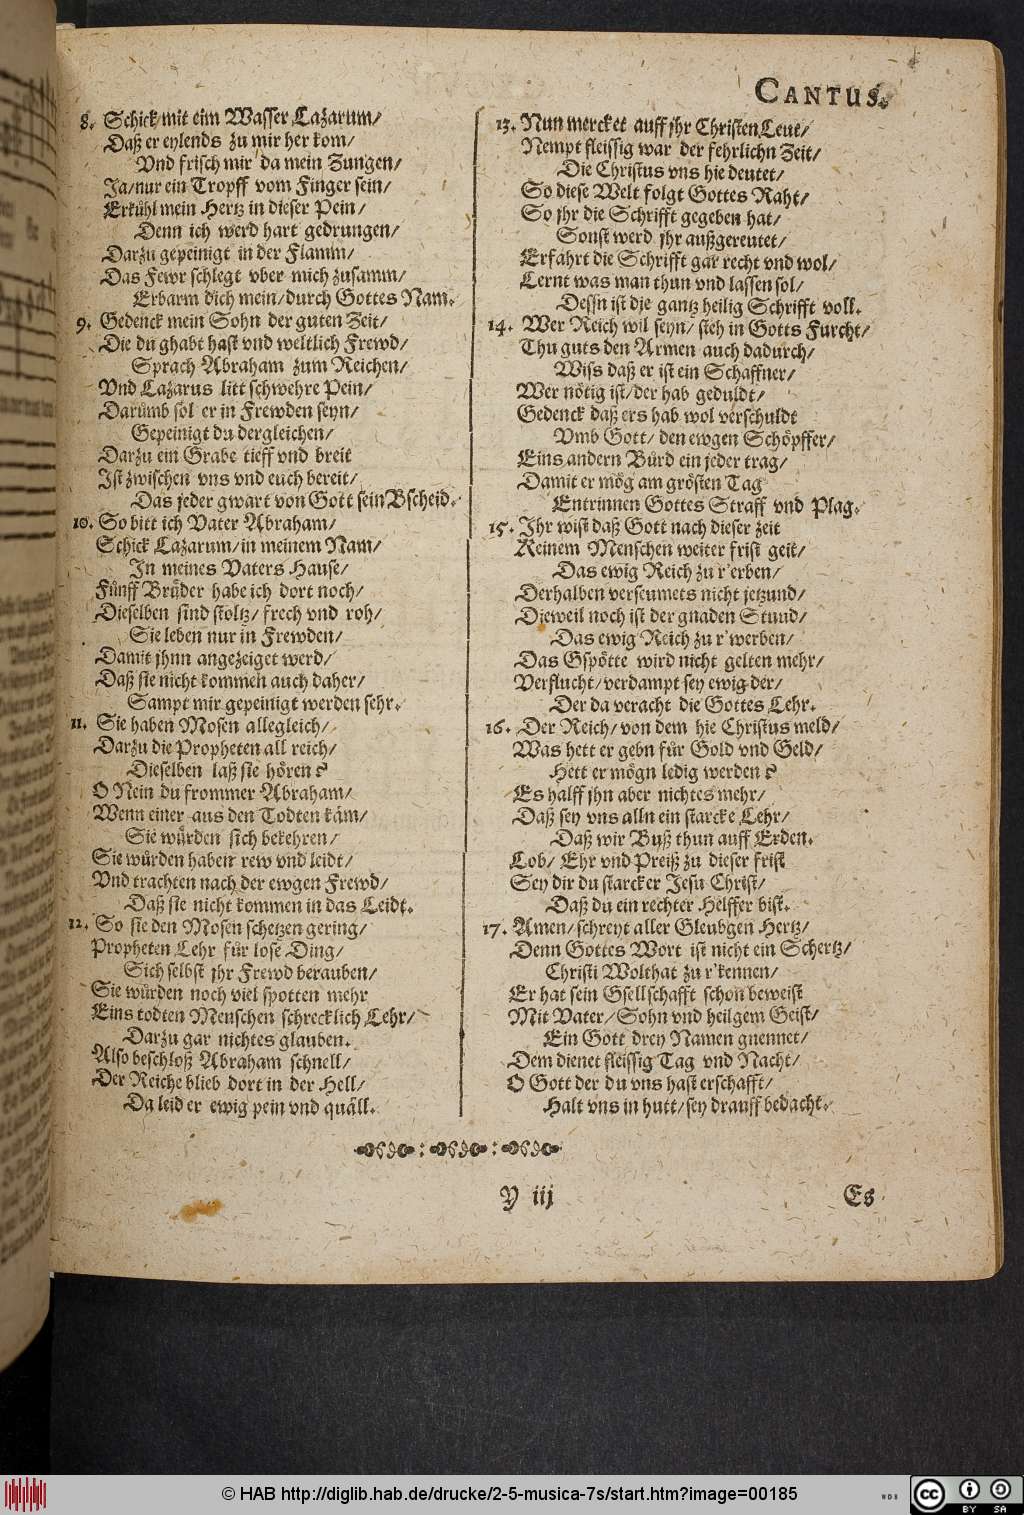 CANTUS.
8. Schick mit eim Wasser Lazarum/
Daß er eylends zu mir her kom/
Vnd frisch mir da mein Zungen/
Ja/nur ein Tropff vom Finger sein/
Erkühl mein Hertz in dieser Pein/
Denn ich werd hart gedrungen/
Darzu gepeinigt in der Flamm/
Das Fewr schlegt vber mich zusamm/
Erbarm dich mein/durch Gottes Nam.
9. Gedenck mein Sohn der guten Zeit/
Die du ghabt hast vnd weltlich Frewd/
Sprach Abraham zum Reichen/
Vnd Lazarus litt schwehre Pein/
Darumb sol er in Frewden seyn/
Gepeinigt du dergleichen/
Darzu ein Grabe tieff vnd breit
Ist zwischen vns vnd euch bereit/
Das jeder gwart von Gott sein Bscheid.
10. So bitt ich Vater Abraham/
Schick Lazarum/in meinem Nam/
In meines Vaters Hause/
Fünff Brüder habe ich dort noch/
Dieselben sind stoltz/frech vnd roh/
Sie leben nur in Frewden/
Damit jhnn angezeiget werd/
Daß sie nicht kommen auch daher/
Sampt mir gepeinigt werden sehr.
11. Sie haben Mosen allegleich/
Darzu die Propheten all reich/
Dieselben laß sie hören?
O Nein du frommer Abraham/
Wenn einer aus den Todten käm/
Sie würden sich bekehren/
Sie würden haben rew vnd leidt/
Vnd trachten nach der ewgen Frewd/
Daß sie nicht kommen in das Leidt.
12. So sie den Mosen schetzen gering/
Propheten Lehr für lose Ding/
Sich selbst jhr Frewd berauben/
Sie würden noch viel spotten mehr
Eins todten Menschen schrecklich Lehr/
Darzu gar nichtes glauben.
Also beschloß Abraham schnell/
Der Reiche blieb dort in der Hell/
Da leid er ewig pein vnd quäll.
13. Nun mercket auff jhr Christen Leut/
Nempt fleissig war der fehrlichn Zeit/
Die Christus vns hie deutet/
So diese Welt folgt Gottes Raht/
So jhr die Schrifft gegeben hat/
Sonst werd jhr außgereutet/
Erfahrt die Schrifft gar recht vnd wol/
Lernt was man thun vnd lassen sol/
Dessn ist die gantz heilig Schrifft voll.
14. Wer Reich wil seyn/ steh in Gotts Furcht/
Thu guts den Armen auch dadurch/
Wiss daß er ist ein Schaffner/
Wer nötig ist/der hab geduldt/
Gedenck daß ers hab wol verschuldt
Vmb Gott/ den ewgen Schöpffer/
Eins andern Bürd ein jeder trag/
Damit er mög am grösten Tag
Entrinnen Gottes Straff vnd Plag.
15. Ihr wist daß Gott nach dieser zeit
Keinem Menschen weiter frist geit/
Das ewig Reich zu r'erben/
Derhalben verseumets nicht jetzund/
Dieweil noch ist der gnaden Stund/
Das ewig Reich zu r'werben/
Das Gspötte wird nicht gelten mehr/
Verflucht/verdampt sey ewig der/
Der da veracht die Gottes Lehr.
16. Der Reich/von dem hie Christus meld/
Was hett er gebn für Gold vnd Geld/
Hett er mögn ledig werden?
Es halff jhn aber nichtes mehr/
Daß sey vns alln ein starcke Lehr/
Daß wir Buß thun auff Erden.
Lob/ Ehr vnd Preiß zu dieser frist
Sey dir du starcker Jesu Christ/
Daß du ein rechter Helffer bist.
17. Amen/schreyt aller Gleubgen Hertz/
Denn Gottes Wort ist nicht ein Schertz/
Christi Wolthat zu r'kennen/
Er hat sein Gsellschafft schon beweist
Mit Vater/Sohn vnd heilgem Geist/
Ein Gott drey Namen gnennet/
Dem dienet fleissig Tag vnd Nacht/
O Gott der du vns hast erschafft/
Halt vns in hutt/sey drauff bedacht.
Y iij
Es
© HAB http://diglib.hab.de/drucke/2-5-musica-7s/start.htm?image=00185
WDB
CC BY SA